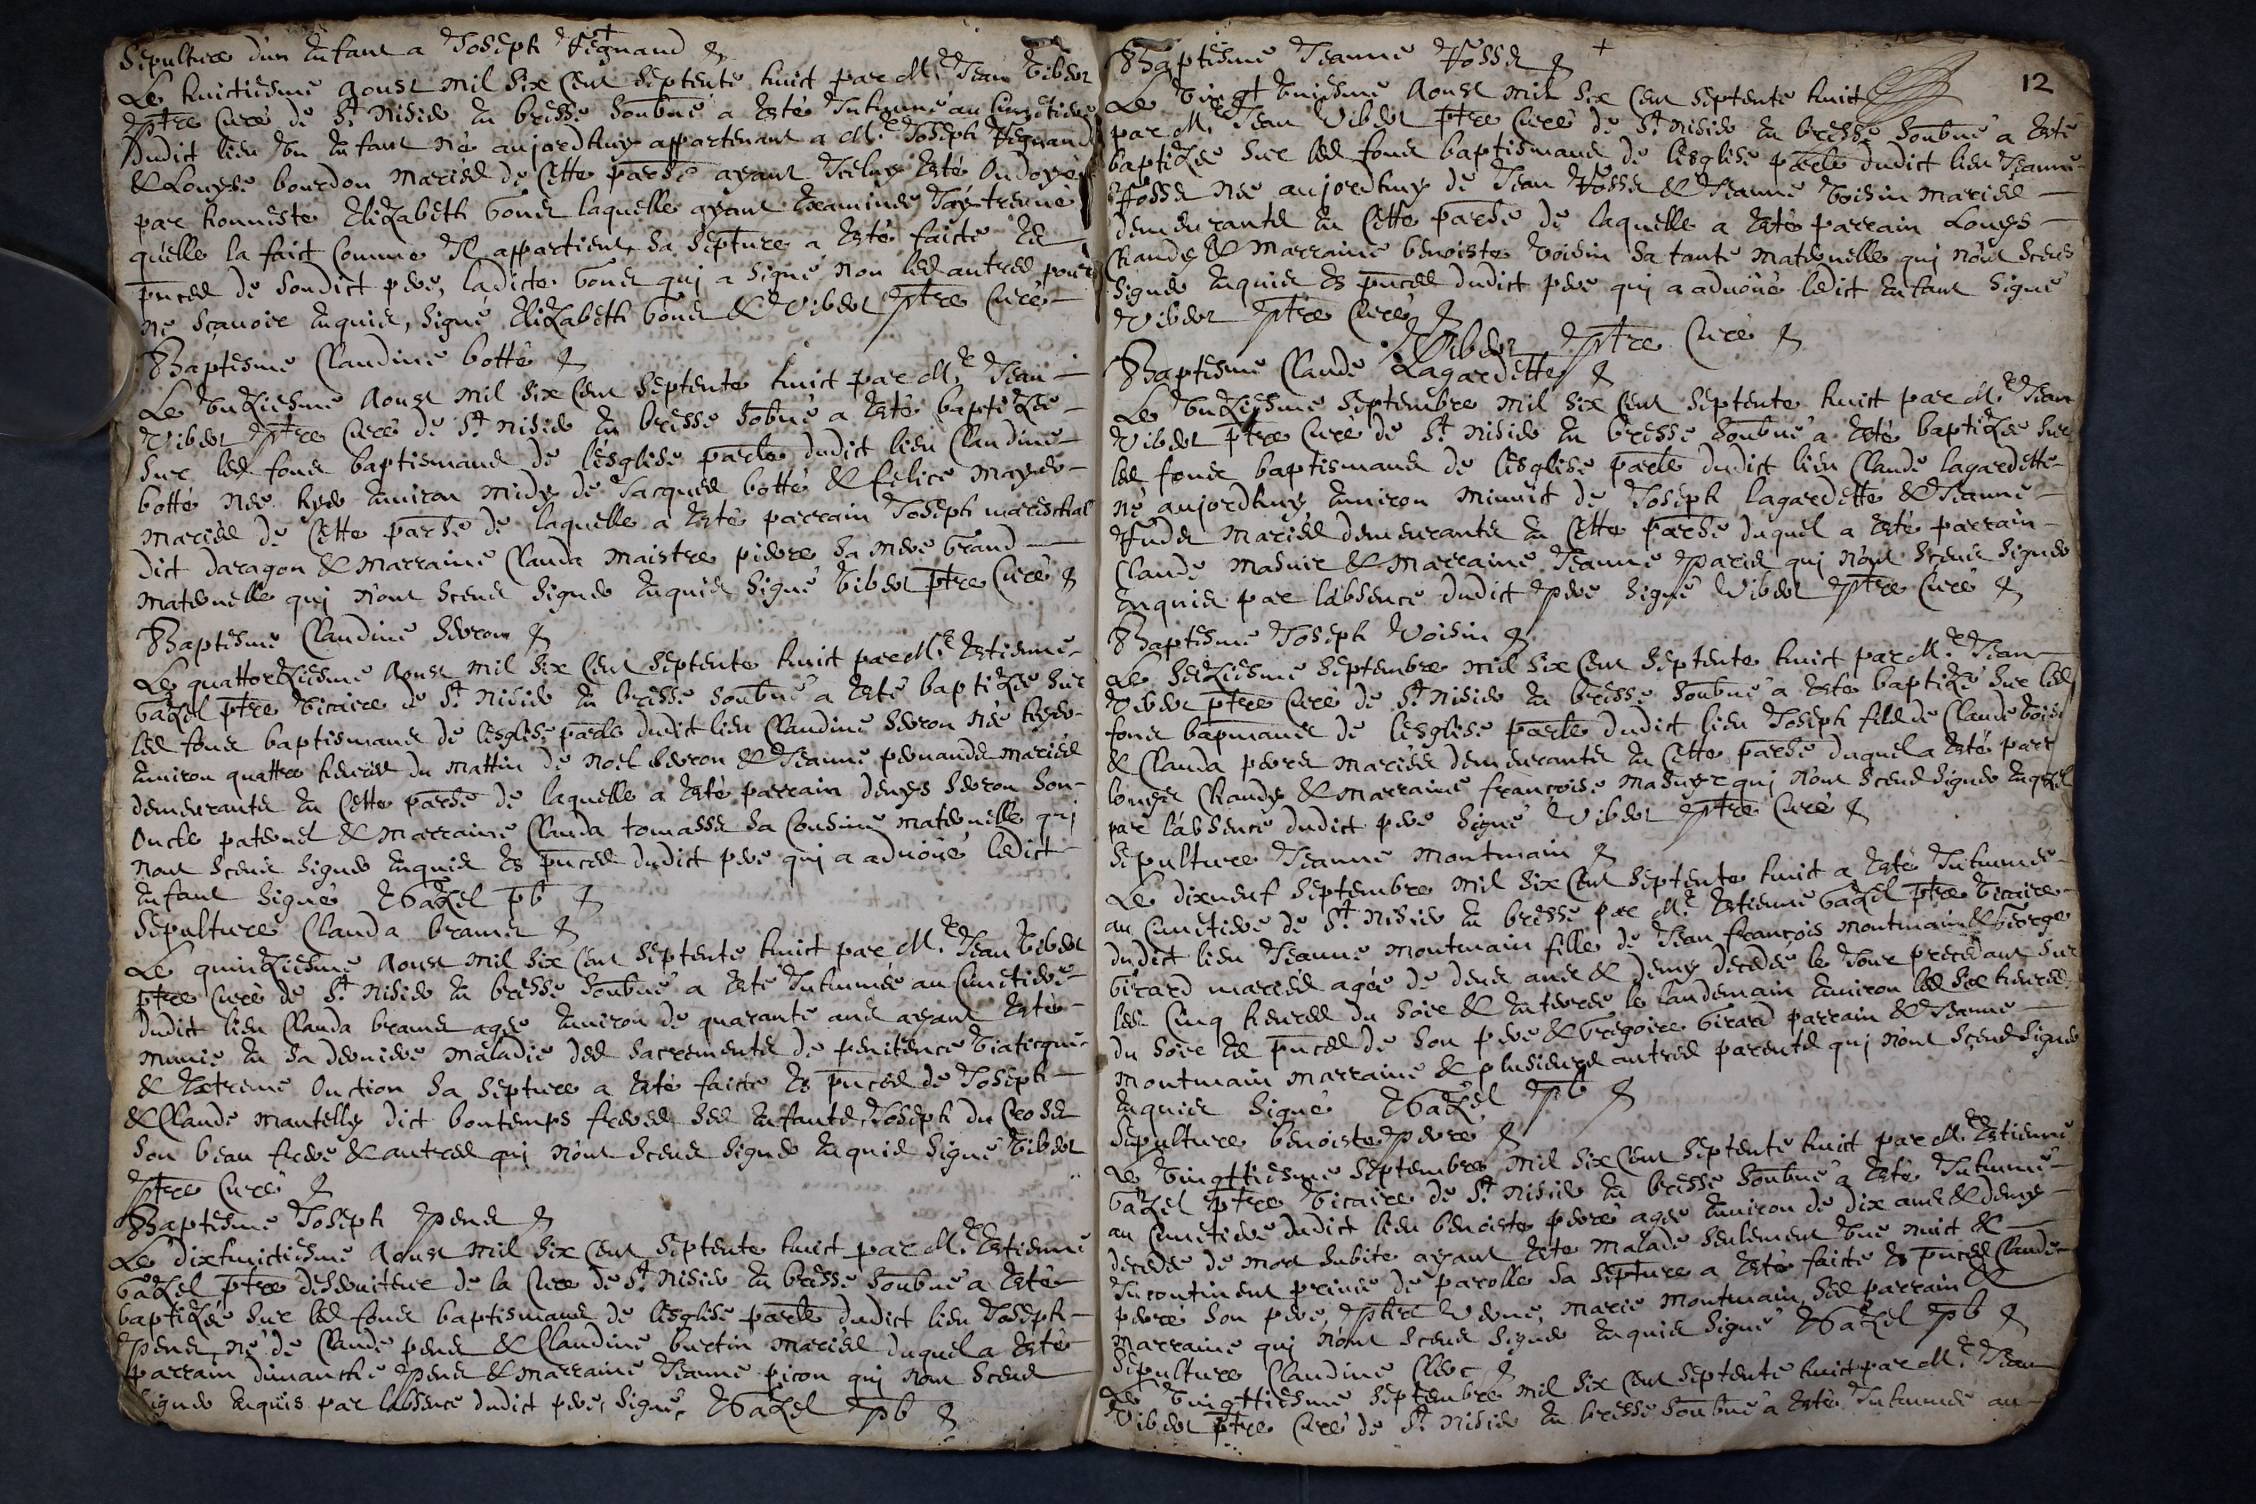 Sepulture d'un enfant a Joseph Regnaud
Le huictiesme aoust mil six cent septente huict par Mre Jean Viber
ptre curé de St Nisier en bresse soubné a esté inhumé au cimetiere
dudict lieu un enfant né aujordhuy appartenant a Mre Joseph Regnaud
& Louyse bourdon mariés de cette parse ayant iceluy esté ondoyé
par honneste Elizabeth Gone laquelle ayant examinée j'ay treuvé
qu'elle la faict comme il appartient, sa septure a esté faicte es
pnces de sondict pere, ladicte Gone qui a signé non les autres pour
ne sçavoir enquis, signé Elizabeth Gone & Viber ptre curé
Baptesme Claudine botte
Le unziesme aoust mil six cent septente huict par Mre Jean
Viber ptre curé de St Nisier en bresse sobné a esté baptizée
sur les fons baptismaus de l'esglise parle dudict lieu Claudine
botte née hyer environ midy de Jacques botte & felice mayer
mariés de cette parse de laquelle a esté parrain Joseph mareschal
dict daragon & marraine Clauda maistre pierre sa mere grand
maternelle qui n'ont sceus signer enquis signé Viber ptre curé
Baptesme Claudine Seron
Le quattorziesme aoust mil six cent septente huict par Mre Estienne
Gazel ptre vicaire de St Nisier en bresse soubné a esté baptizée sur
les fons baptismaus de lesglise parle dudict lieu Claudine Seron née hyer
environ quattre heures du mattin de Noel Seron & Jeanne pernande mariés
demeurants en cette parse de laquelle a esté parrain denys Seron son
oncle paternel & marraine Clauda tomasse sa cousine maternelle qui
nont sceus signer enquis es pnces dudict pere qui a advoüé ledict
enfant signé EGazel pb
Sepulture Clauda brame
Le quinziesme aoust mil six cent septente huict par Mre Jean Viber
ptre curé de St Nisier en bresse soubné a esté inhumée au cimetiere
dudict lieu Clauda brame agée environ de quarante ans ayant esté
munie en sa derniere maladie des sacrements de penitence viaticque
& extreme onction sa septure a esté faicte es pnces de Joseph
& Claude mantelly dict bontemps freres ses enfants, Joseph du
son beau frere & autres qui n'ont sceus signer enquis signé Viber
ptre curé
Baptesme Joseph pene
Le dixhuictiesme aoust mil six cent septente huict par Mre Estienne
Gazel ptre deserviteur de la cure de St Nisier en bresse soubné a esté
baptizée sur les fons baptismaus de lesglise parle dudict lieu Joseph
pene, né de Claude pene & Claudine burtin mariés duquel a esté
parrain dimanche pene & marraine Jeanne picon qui nont sceus
signer enquis par labsence dudict pere, signé, EGazel pb
12
Baptesme Jeanne fosse
Le vingt uniesme aoust mil six cent septente huict
par Mre Jean Viber ptre curé de St Nisier en bresse soubné a esté
baptizée sur les fons baptismaus de lesglise parle dudict lieu Jeanne
fosse née aujordhuy de Jean fosse & Jeanne Voisin mariés
demeurants en cette parse de laquelle a esté parrain Louys
Chandy & marraine benoiste Voisin sa tante maternelle qui n'ont sceus
signer enquis es pnces dudict pere qui a advoüé ledict enfant signé
Viber ptre curé
Viber ptre curé
Baptesme Claude Lagardette
Le unziesme septembre mil six cent septente huict par Mre Jean
Viber ptre curé de St Nisier en bresse soubné a esté baptizée sur
les fons baptismaus de lesglise parle dudict lieu Claude lagardette
né aujordhuy environ minuict de Joseph lagardette & Jeanne
mariés demeurants en cette parse duquel a esté parrain
Claude masuir & marraine Jeanne paris qui n'ont sceus signer
enquis par labsence dudict pere signé Viber ptre curé
Baptesme Joseph Voisin
Le seiziesme septembre mil six cent septente huict par Mre Jean
Viber ptre curé de St Nisier en bresse soubné a esté baptizé sur les
fons bapmaus de lesglise parle dudict lieu Joseph fils de Claude Voisin
& Clauda perre mariés demeurants en cette parse duquel a esté parr
louys Chandy & marraine françoise masuyr qui n'ont sceus signer enquis
par l'absence dudict pere signé Viber ptre curé
Sepulture Jeanne montmain
Le dixneuf septembre mil six cent septente huict a esté inhumée
au cimetiere de St Nisier en bresse par Mre Estienne Gazel ptre vicaire
dudict lieu Jeanne montmain fille de Jean françois montmain & Pierrge
Girard mariés agée de deus ans & demy decedée le jour precedant sur
les cinq heures du soir & enterrée le landemain environ les six heures
du soir es pnces de son pere & Gregoire Girard parrain & Jeanne
montmain marraine & plusieurs autres parents qui n'ont sceus signer
enquis signé EGazel pb
Sepulture benoiste perre
Le vingttiesme septembre mil six cent septente huict par Mre Estienne
Gazel ptre vicaire de St Nisier en bresse soubné a esté inhumé
au cimetiere dudict lieu benoiste perre agée environ de dix ans & demy
decedée de mort subite ayant esté malade seulement une nuict &
incontinent privée de parolle sa septure a esté faicte es pnces Claude
perre son pere, marie montmain, ses parrain &
marraine qui n'ont sceus signer enquis signé EGazel pb
Sepulture Claudine Clerc
Le vingttiesme septembre mil six cent septente huict par Mre Jean
Viber ptre curé de St Nisier en bresse soubné a esté inhumée au